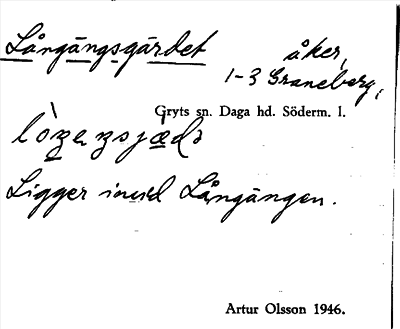 Långängsgärdet åker,
1-3 Graneberg,
Gryts sn. Daga hd. Söderm. l.
Ligger invid Långängen.
Artur Olsson 1946.